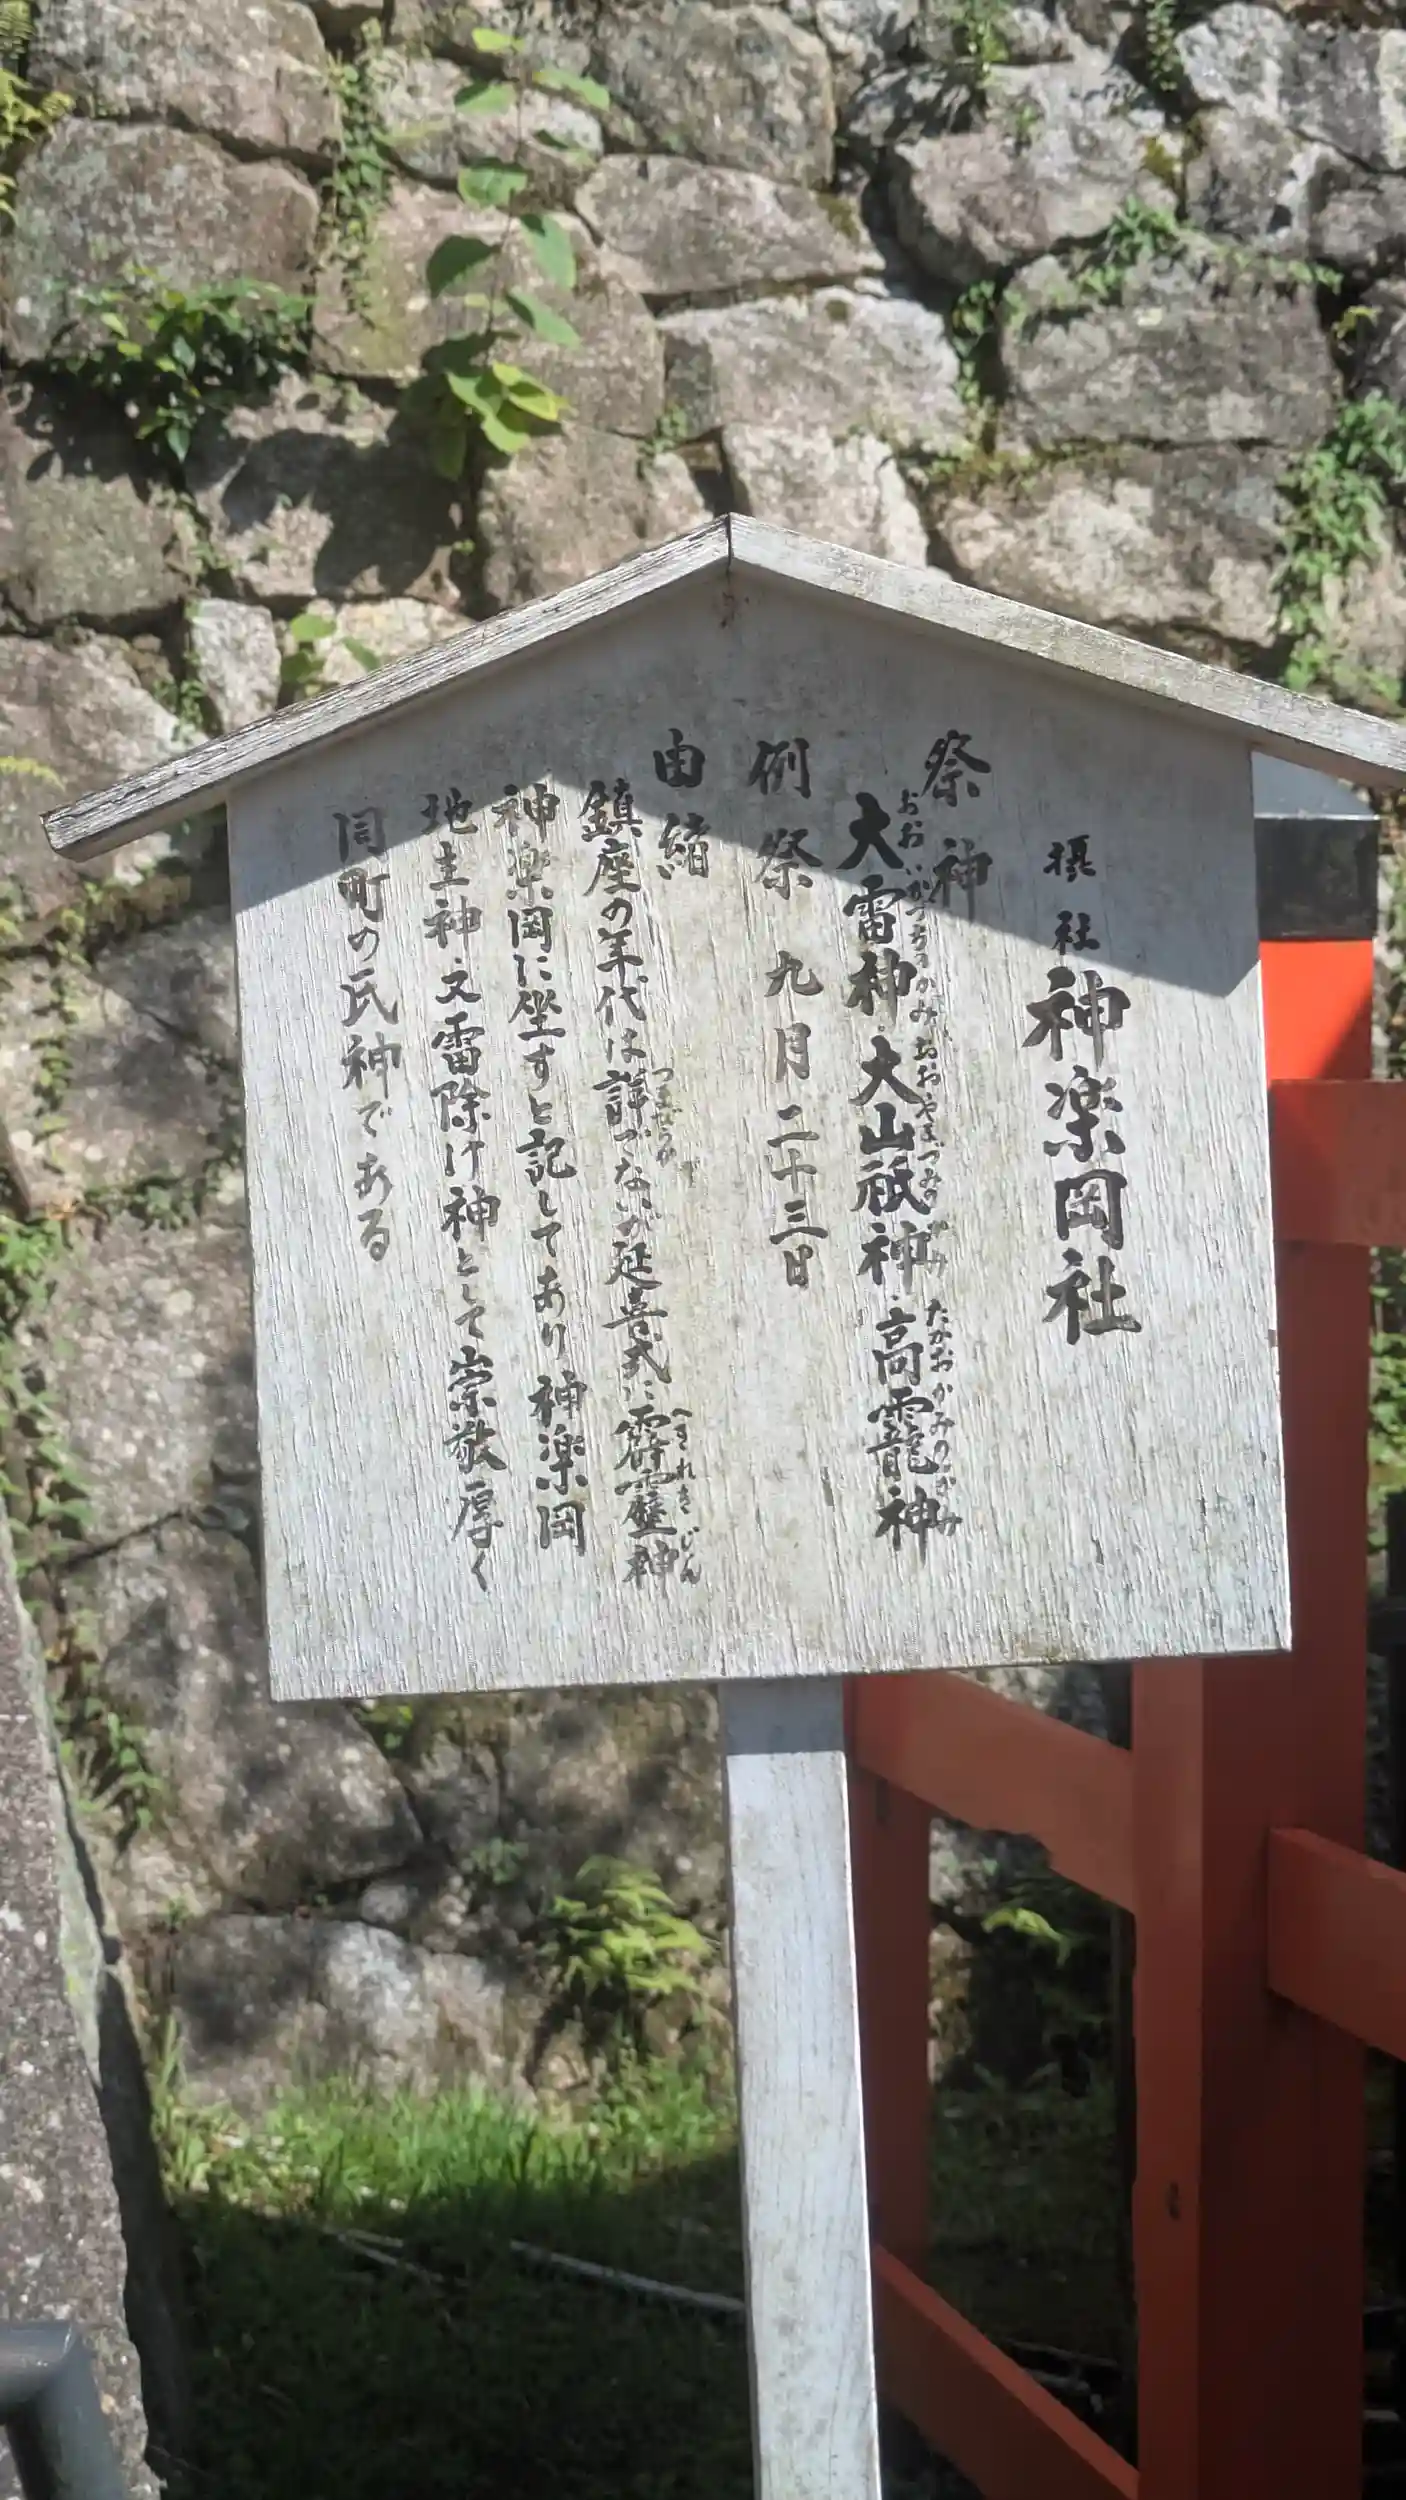 摂社 神楽岡社
祭神
おおいかづちのかみ おおやまづみのかみ たかおかみのかみ
大雷神・大山祇神・高龗神
例祭 九月二十三日
由緒
つまびらか へきれきじん
鎮座の年代は詳づないが延喜式に霹靂神
神楽岡に坐すと記してあり神楽岡
地主神・又雷除け神として崇敬厚く
同町の氏神である